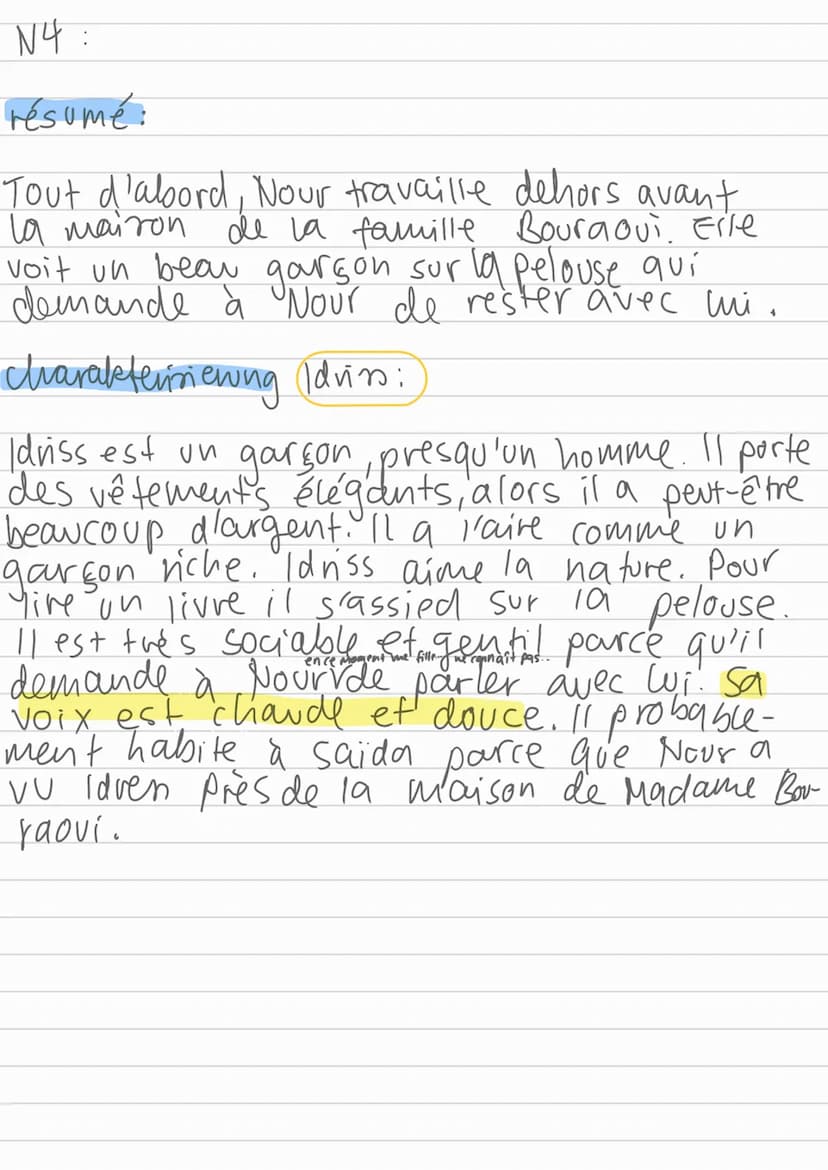 N4 :
résumé:
Tout d'abord, Nour travaille dehors avant
la maison de la famille Bouraoui. Elle
voit un beau garçon sur la pelouse qui
demande à Nour de rester avec lui.
Charakterisierung Idriss:
Idriss est un garçon, presqu'un homme. Il porte
des vêtements élégants, alors il a peut-être
beaucoup d'argent. Il a l'aire comme un
garçon riche. Idriss aime la nature. Pour
lire un livre il s'assied sur la pelouse.
Il est très sociable et gentil parce qu'il
en ce moment une fille ne connaît pas..
demande à Nour de parler avec lui. Sa
voix est chaude et douce. Il probable-
ment habite à Saïda parce que Nour a
vu près de la maison de Madame Bou-
raoui.